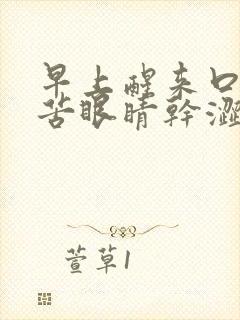 早上醒来口
苦眼睛幹澀
萱草1